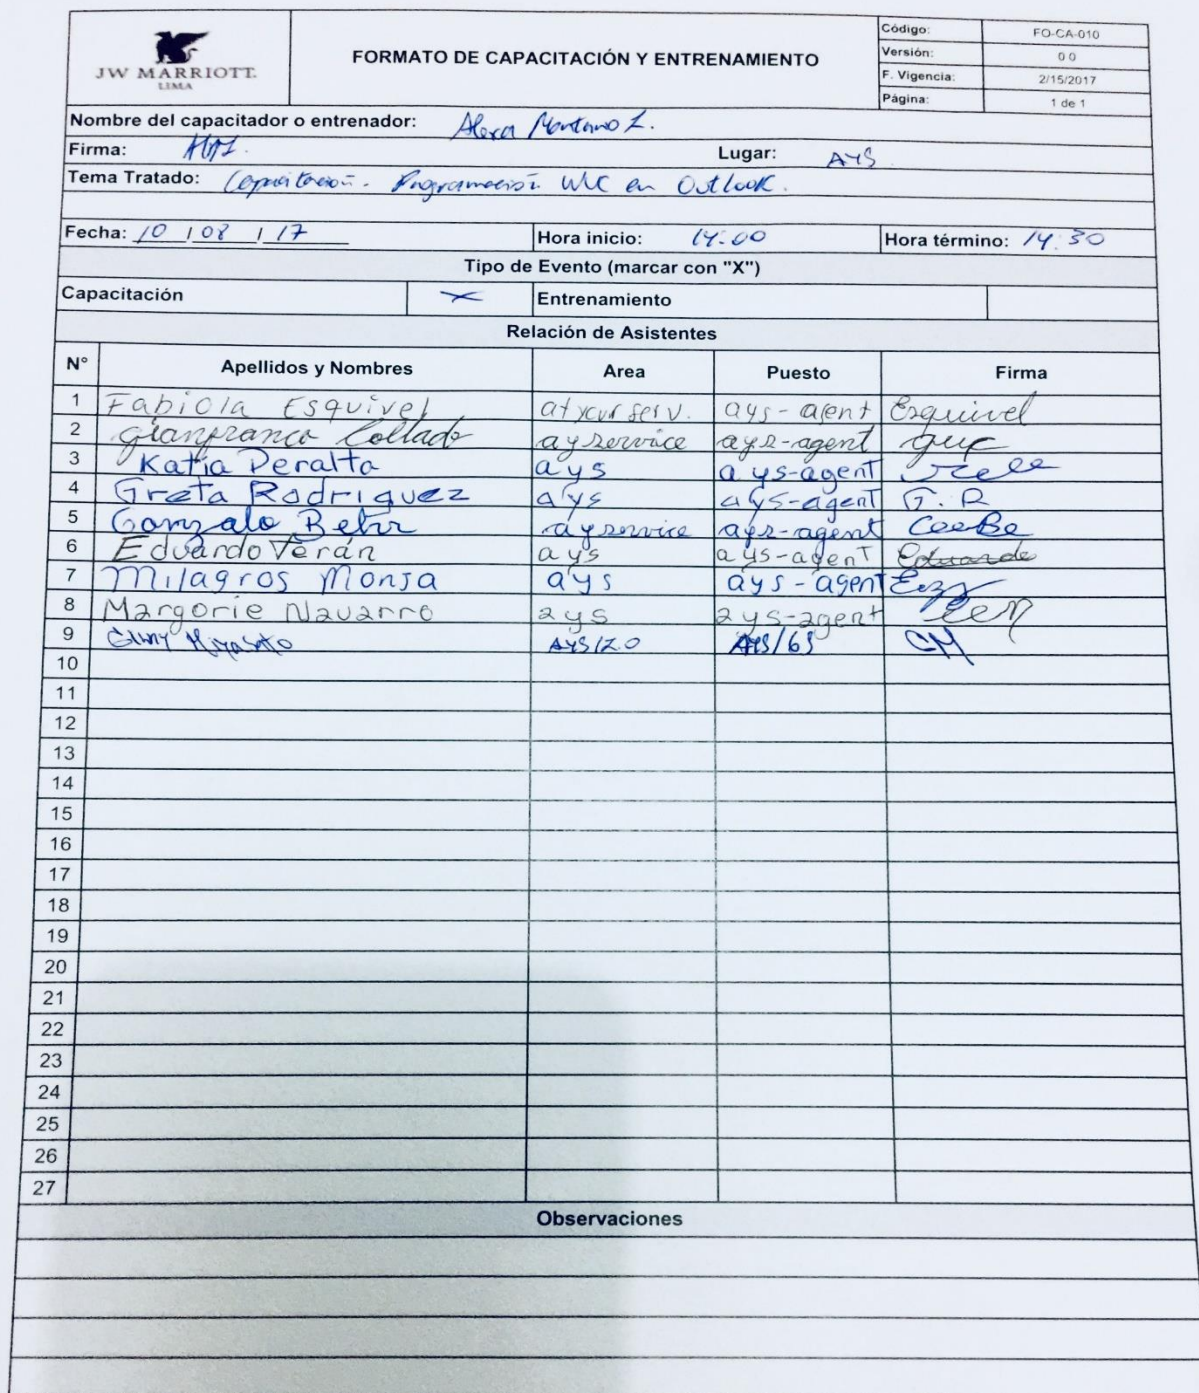 JW MARRIOTT
LIMA
FORMATO DE CAPACITACIÓN Y ENTRENAMIENTO
Código: FO-CA-010
Versión: 0 0
F. Vigencia: 2/15/2017
Página: 1 de 1
Nombre del capacitador o entrenador: Alexa Montano Z.
Firma: Lugar: AYS
Tema Tratado: Capacitación - Programación WUC en Outlook.
Fecha: 10 / 08 / 17 Hora inicio: 14:00 Hora término: 14:30
Tipo de Evento (marcar con "X")
Capacitación X Entrenamiento
Relación de Asistentes
N° Apellidos y Nombres Area Puesto Firma
1 Fabiola Esquivel at your serv. ays-agent Esquivel
2 Gianfranco Collado ayservice ays-agent
3 Katia Peralta ays ays-agent
4 Greta Rodriguez ays ays-agent G. R
5 Gonzalo Behr ayservice ays-agent
6 Eduardo Terán ays ays-agent Eduardo
7 Milagros Monja ays ays-agent
8 Margorie Navarro ays ays-agent
9 AYS CM
10
11
12
13
14
15
16
17
18
19
20
21
22
23
24
25
26
27
Observaciones